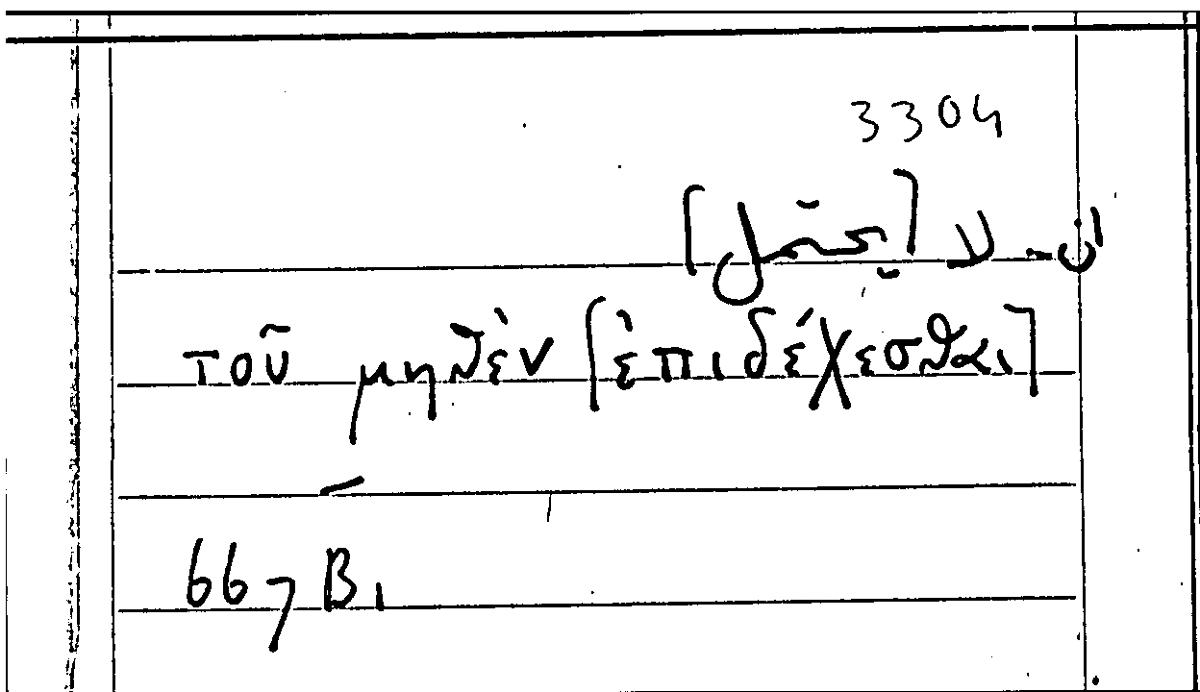 3304
ان لا [يحتمل]
τοῦ μηθὲν [ἐπιδέχεσθαι]
667 B1